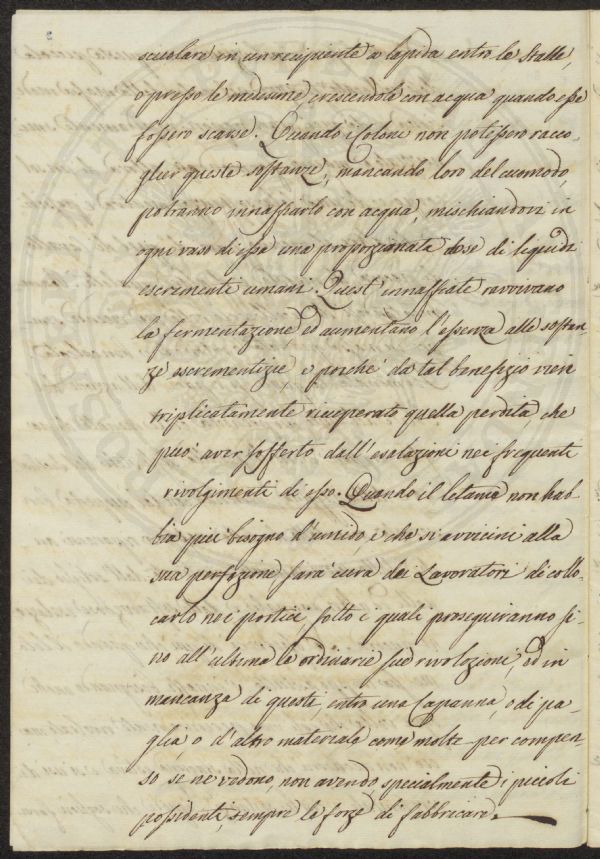 scuolare in un recipiente a lapida entro le Stalle,
o presso le medesime, crescendole con acqua quando esse
fossero scarse. Quando i Coloni non potessero racco-
glier queste sostanze, mancando loro del cuomodo,
potranno innaffiarlo con acqua, mischiandovi in
ogni vaso di essa una proporzionata dose di liquidi
escrementi umani. Quest' innaffiate ravvivano
la fermentazione ed aumentano l'essenza alle sostan
ze escrementizie, e perchè da tal benefizio vien
triplicatamente ricuperato quella perdita che
può aver sofferto dall'esalazioni nei frequenti
rivolgimenti di esso. Quando il letame non hab
bia più bisogno d'umido, e che si avvicini alla
sua perfezione sarà cura dei Lavoratori di collo-
carlo nei portici sotto i quali proseguiranno fi-
no all'ultimo le ordinarie sue rivolzioni, ed in
mancanza di questi, entro una Capanna, o di pa-
glia, o d'altro materiale come molte per compen-
so se ne vedono, non avendo specialmente i piccoli
possidenti, sempre le forze di fabbricare.